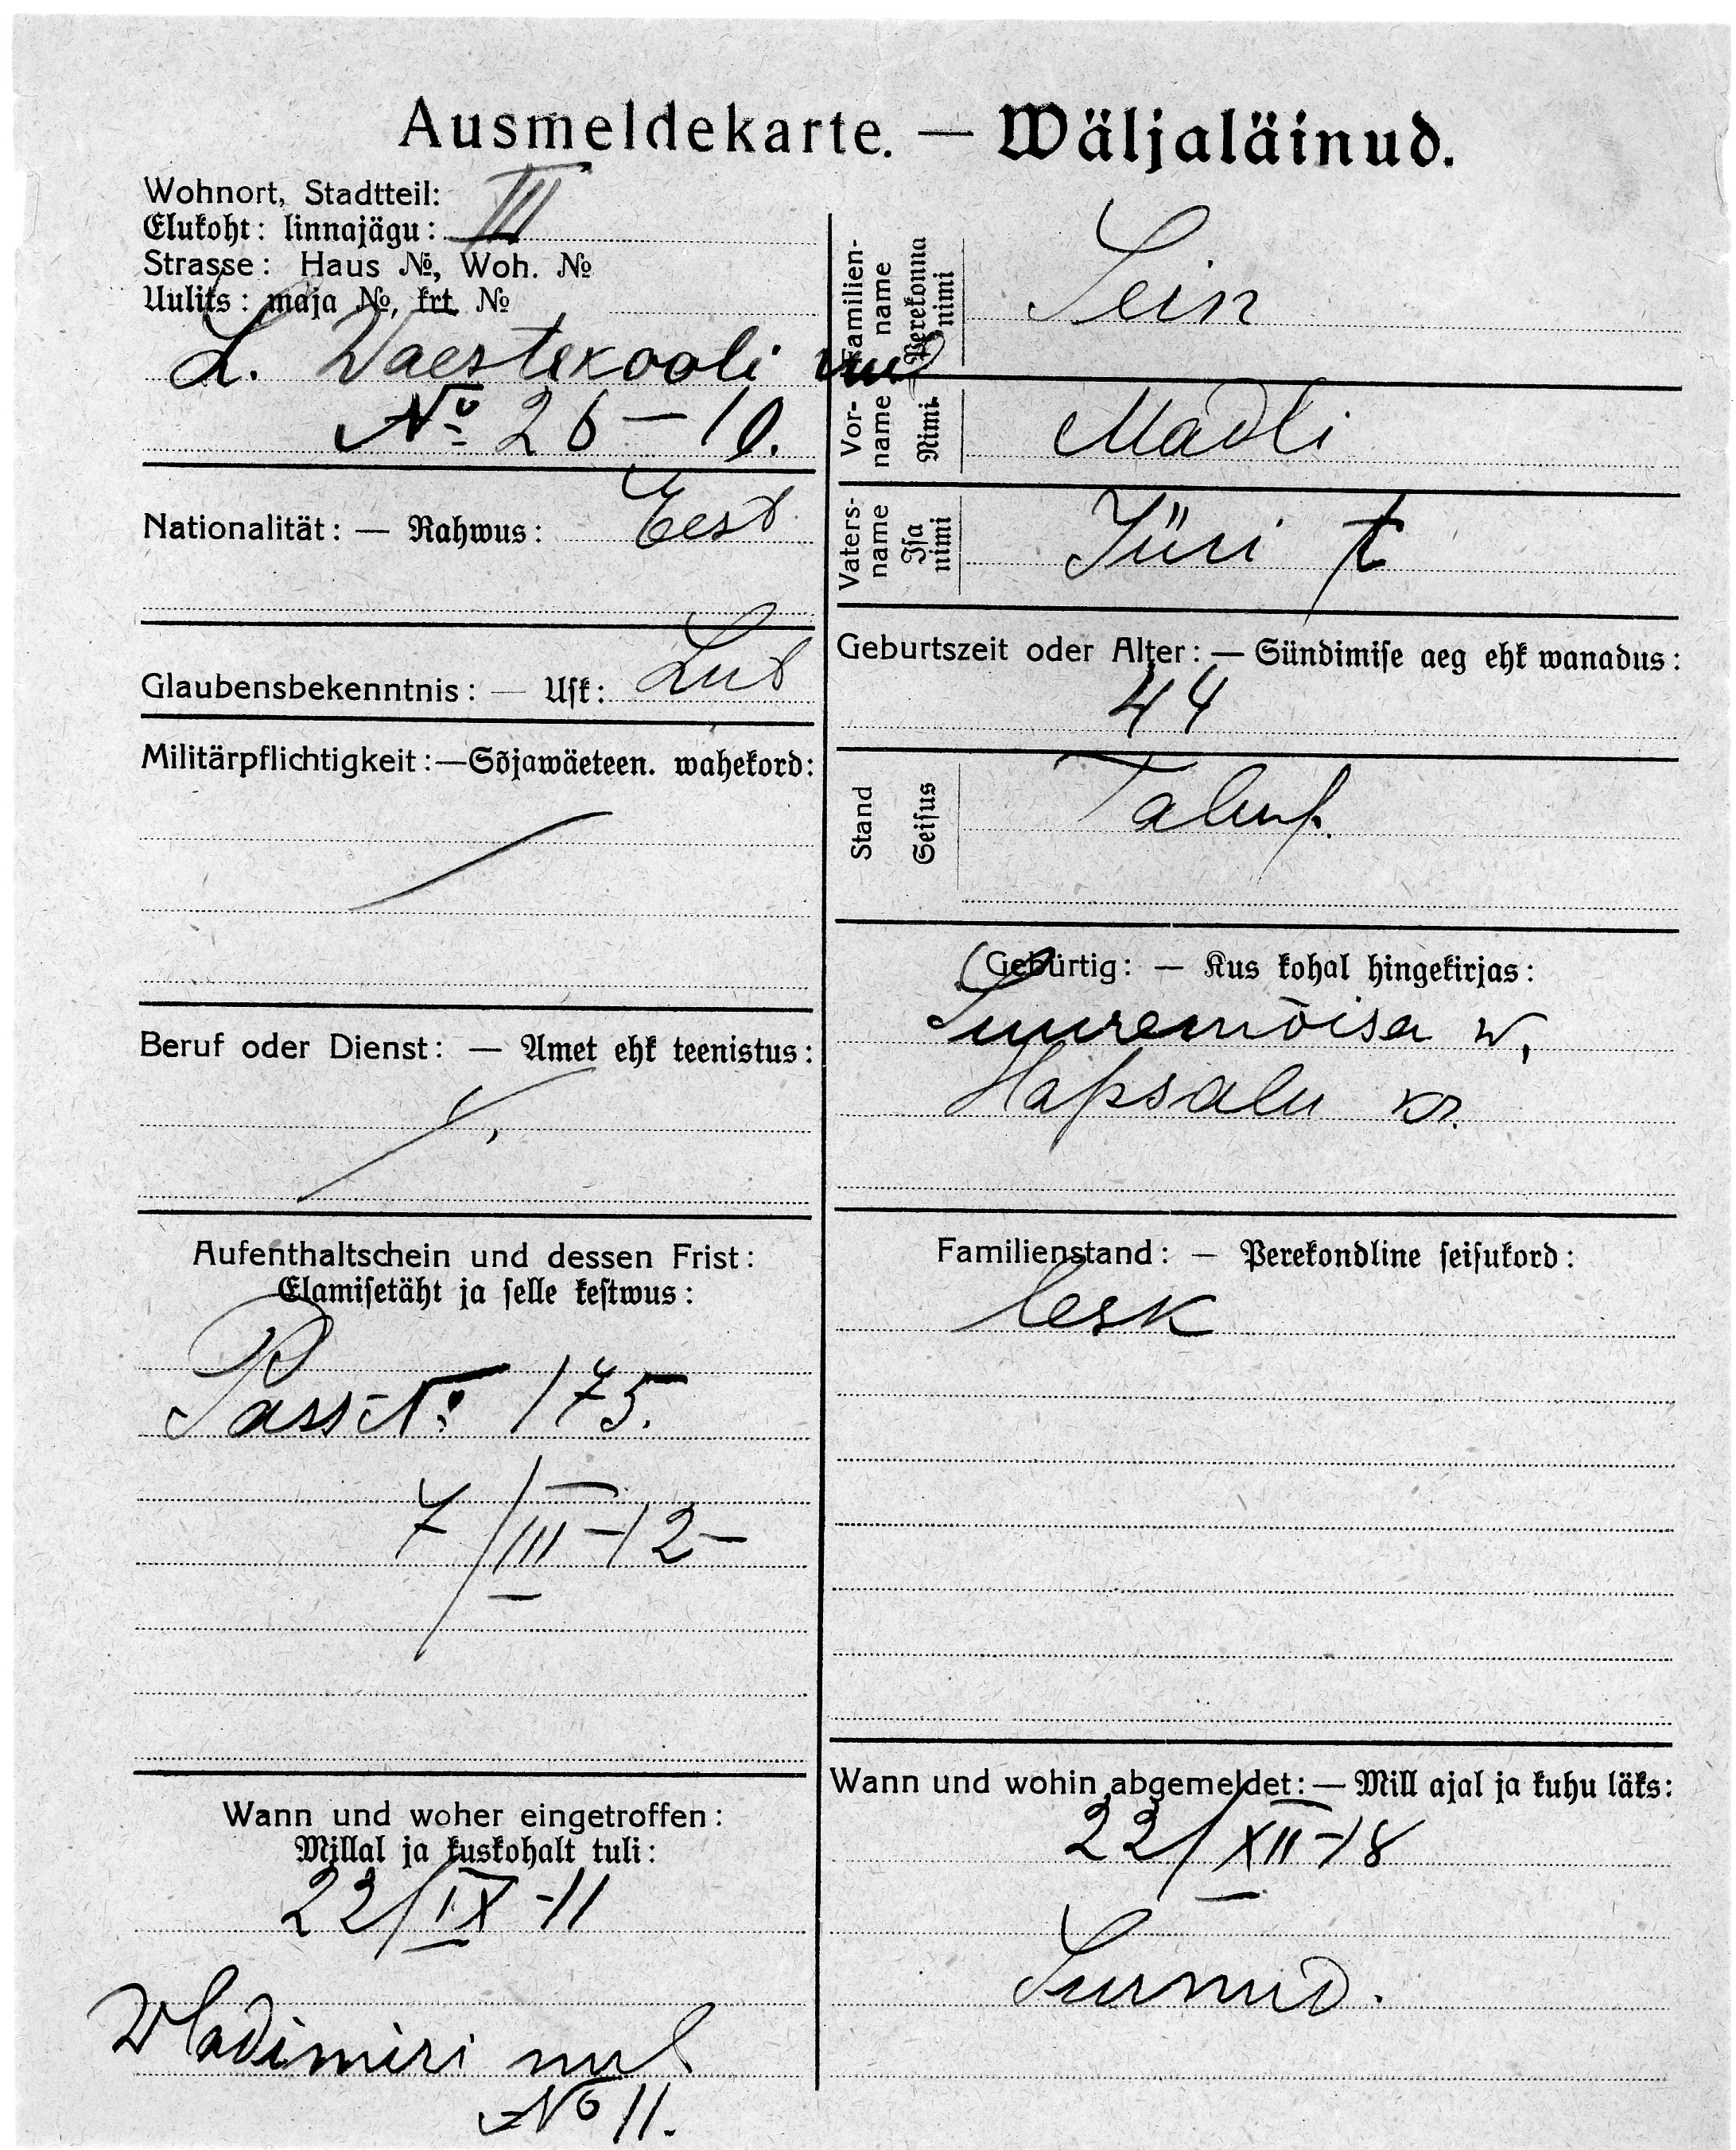 Ausmeldekarte. — Wäljaläinud.
Wohnort, Stadtteil:
Elukoht: linnajägu: III
Strasse: Haus №, Woh. №
Uulits: maja №, krt. №
L. Vaestekooli uul
№ 26 — 10.
Nationalität: — Rahwus: Eest
Glaubensbekenntnis: — Usk: Lut
Militärpflichtigkeit: — Sõjawäeteen. wahekord:
Beruf oder Dienst: — Amet ehk teenistus:
Aufenthaltschein und dessen Frist:
Elamisetäht ja selle kestwus:
Pass № 175.
7/III-12
Wann und woher eingetroffen:
Millal ja kuskohalt tuli:
22/IX-11
Wladimiri uul
№ 11.
Familien-name Perekonna nimi Sein
Vor-name Nimi Madli
Vaters-name Isa nimi Jüri t
Geburtszeit oder Alter: — Sündimise aeg ehk wanadus:
44
Stand Seisus Talup.
Gebürtig: — Kus kohal hingekirjas:
Suuremõisa w,
Hapsalu kr.
Familienstand: — Perekondline seisukord:
lesk
Wann und wohin abgemeldet: — Mill ajal ja kuhu läks:
22/XII-18
Surnud.